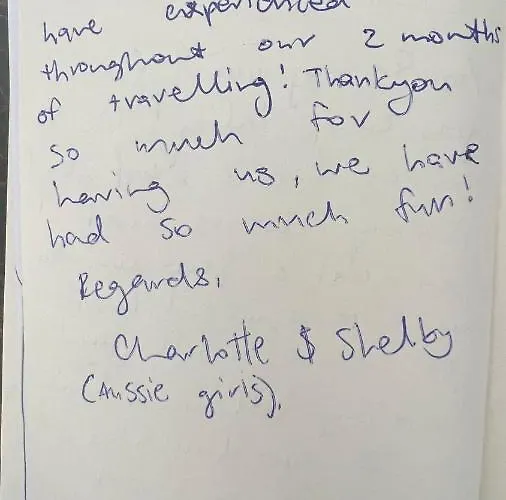 have experienced
throughout our 2 months
of travelling! Thankyou
so much for
having us, we have
had so much fun!
Regards,
Charlotte & Shelby
(Aussie girls).